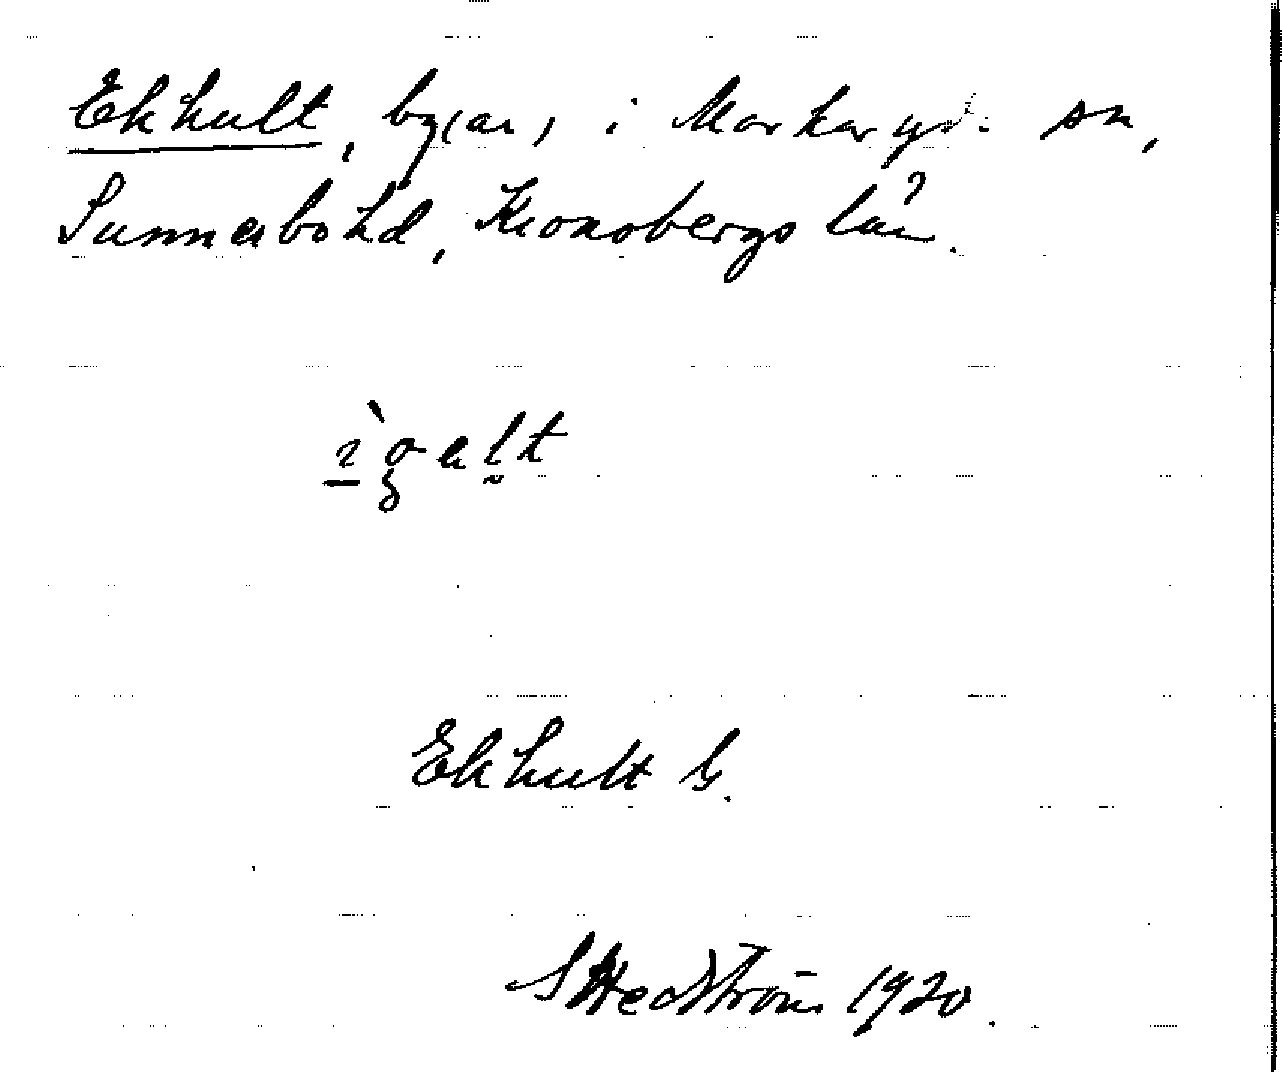 Ekhult, by(ar) i Markaryds sn,
Sunnerbo hd, Kronobergs län.
Ekhult G.
S Hedström 1920.